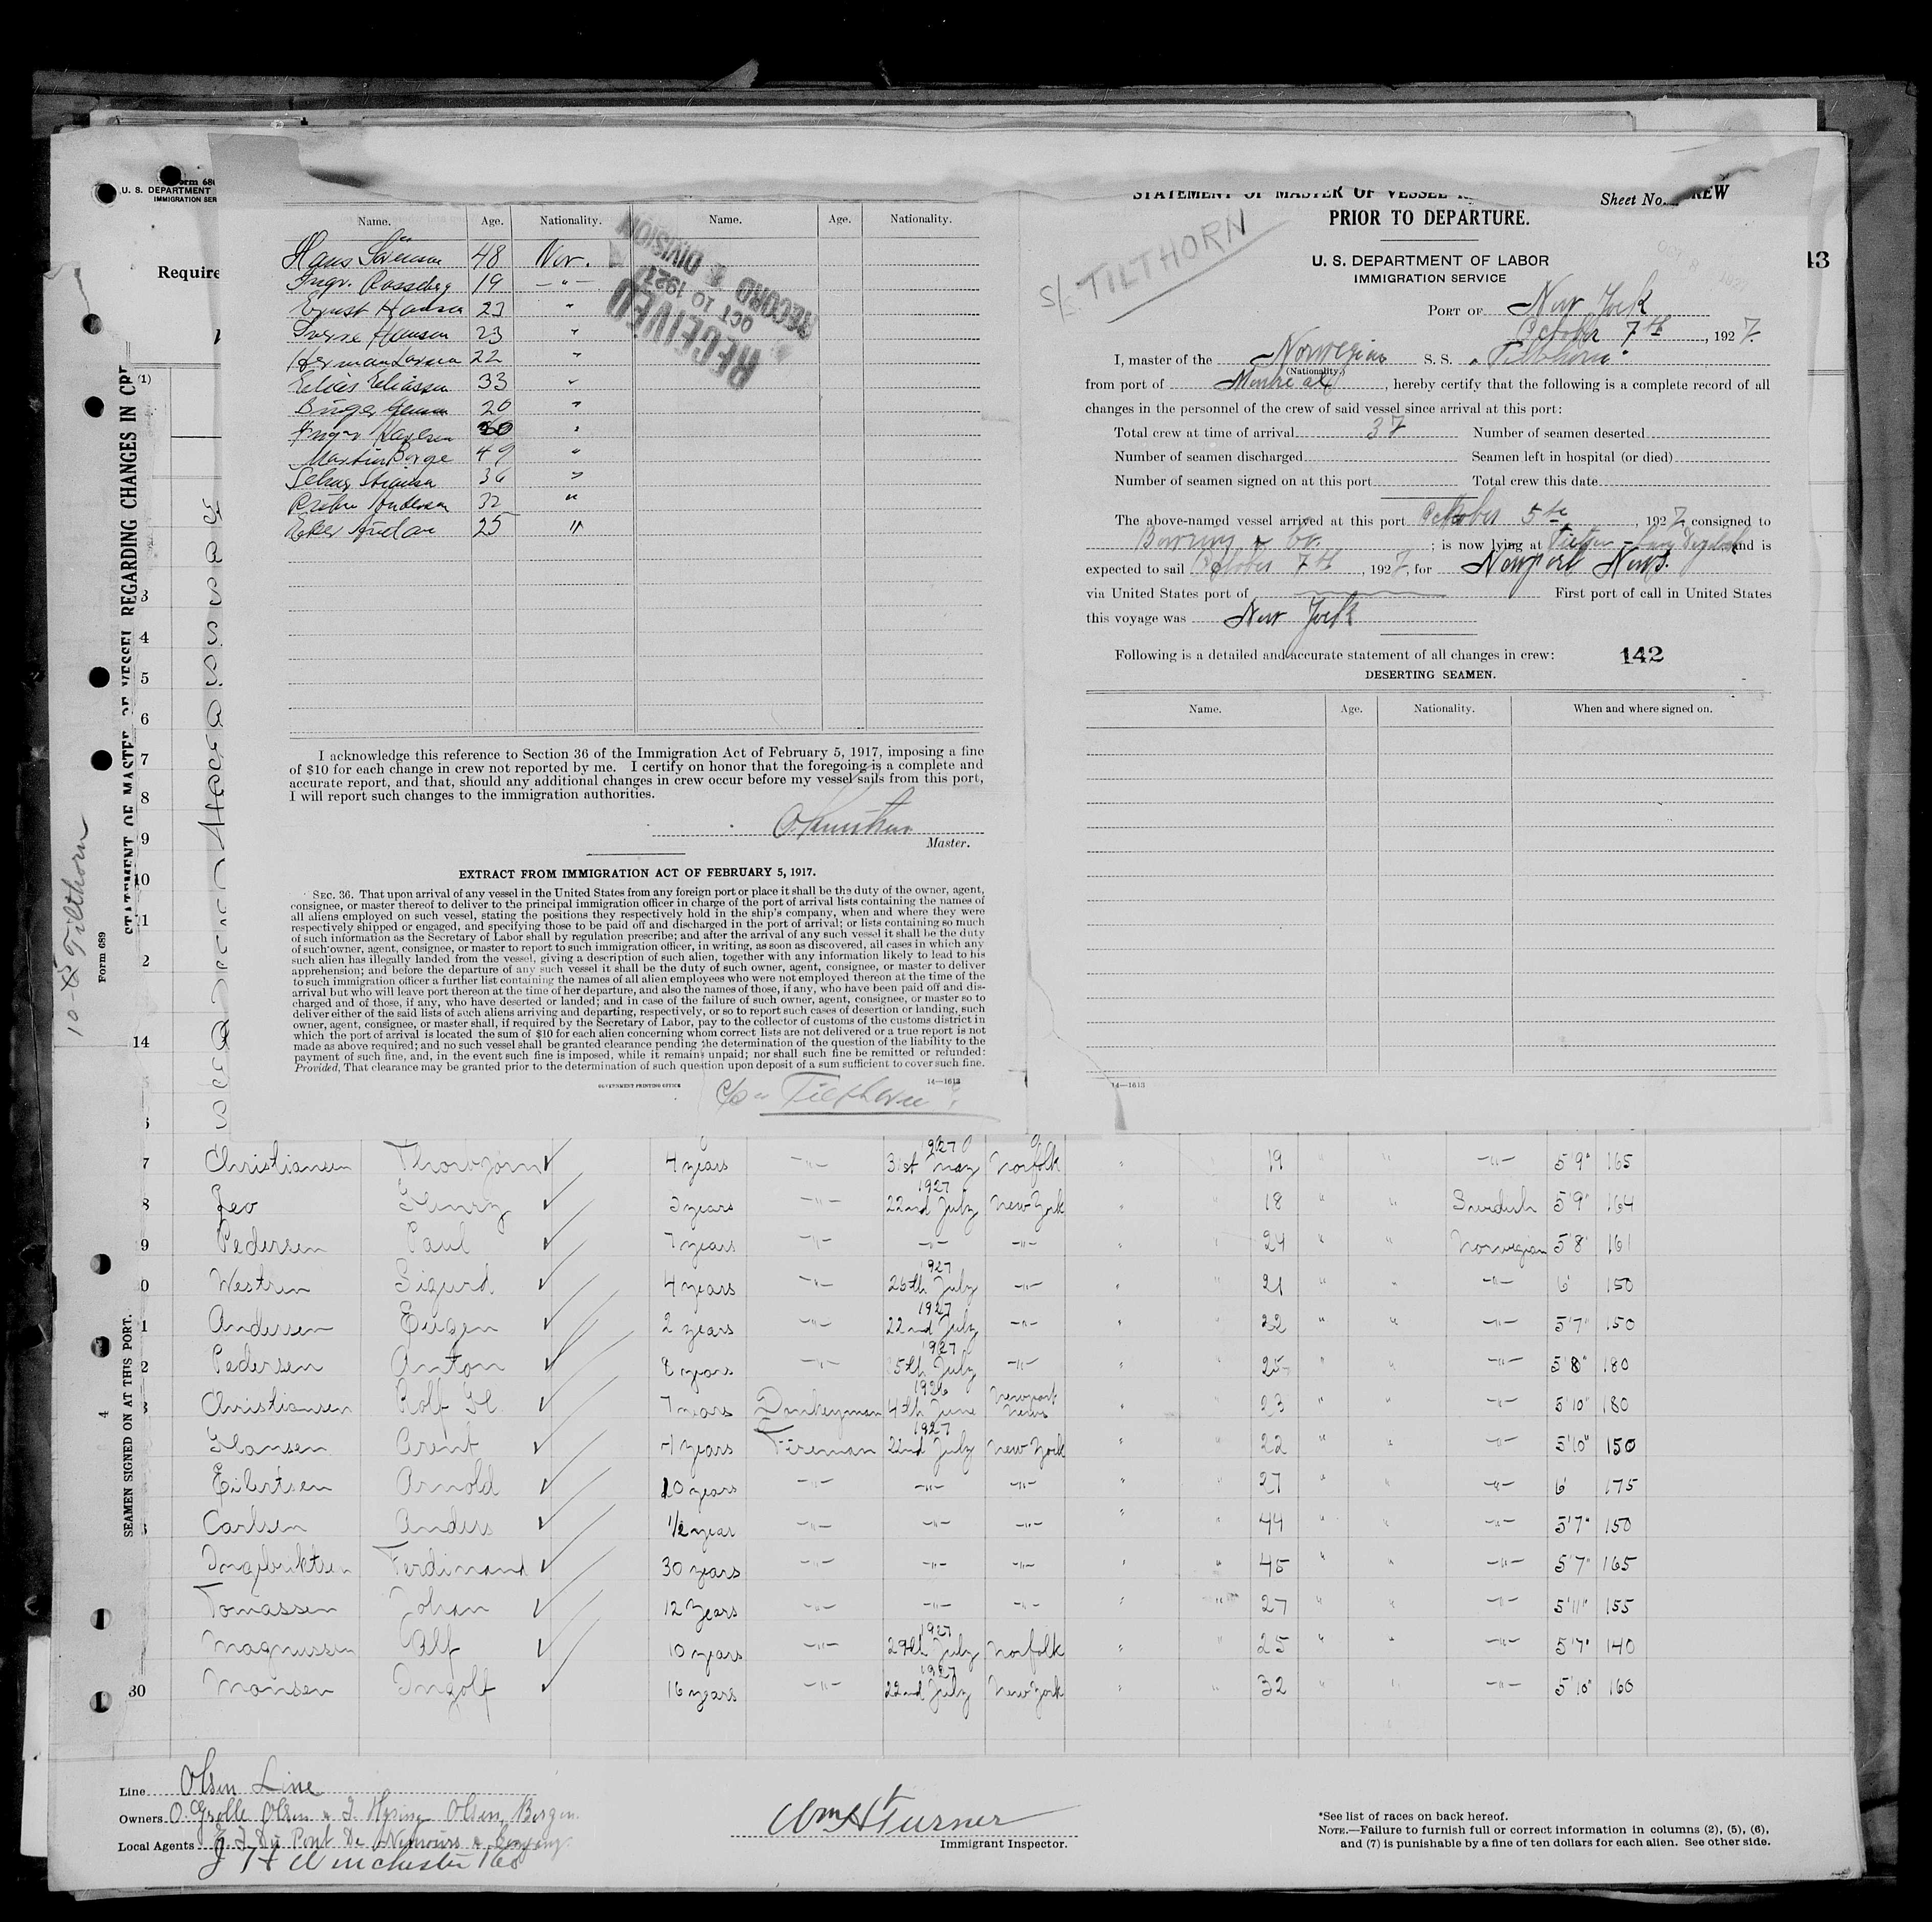 Form 689
U. S. DEPARTMENT
IMMIGRATION SER
Require
13
10- Tilthorn
Form 689
STATEMENT OF MASTER OF VESSEL REGARDING CHANGES IN CRE
4
SEAMEN SIGNED ON AT THIS PORT.
Name. Age. Nationality. Name. Age. Nationality.
Hans 48 Nor.
Ingv. 19 — " —
Ernst Hansen 23 "
Sverre Hansen 23 "
Herman Larsen 22 "
Elias Eliassen 33 "
Birger Jensen 20 "
Ingv. Karlsen 30 "
Martin Borge 49 "
36 "
Andersen 32 "
25 "
RECEIVED
OCT 10 1927
RECORD & DIVISION
I acknowledge this reference to Section 36 of the Immigration Act of February 5, 1917, imposing a fine
of $10 for each change in crew not reported by me. I certify on honor that the foregoing is a complete and
accurate report, and that, should any additional changes in crew occur before my vessel sails from this port,
I will report such changes to the immigration authorities.
Master.
EXTRACT FROM IMMIGRATION ACT OF FEBRUARY 5, 1917.
SEC. 36. That upon arrival of any vessel in the United States from any foreign port or place it shall be the duty of the owner, agent,
consignee, or master thereof to deliver to the principal immigration officer in charge of the port of arrival lists containing the names of
all aliens employed on such vessel, stating the positions they respectively hold in the ship's company, when and where they were
respectively shipped or engaged, and specifying those to be paid off and discharged in the port of arrival; or lists containing so much
of such information as the Secretary of Labor shall by regulation prescribe; and after the arrival of any such vessel it shall be the duty
of such owner, agent, consignee, or master to report to such immigration officer, in writing, as soon as discovered, all cases in which any
such alien has illegally landed from the vessel, giving a description of such alien, together with any information likely to lead to his
apprehension; and before the departure of any such vessel it shall be the duty of such owner, agent, consignee, or master to deliver
to such immigration officer a further list containing the names of all alien employees who were not employed thereon at the time of the
arrival but who will leave port thereon at the time of her departure, and also the names of those, if any, who have been paid off and dis-
charged and of those, if any, who have deserted or landed; and in case of the failure of such owner, agent, consignee, or master so to
deliver either of the said lists of such aliens arriving and departing, respectively, or so to report such cases of desertion or landing, such
owner, agent, consignee, or master shall, if required by the Secretary of Labor, pay to the collector of customs of the customs district in
which the port of arrival is located the sum of $10 for each alien concerning whom correct lists are not delivered or a true report is not
made as above required; and no such vessel shall be granted clearance pending the determination of the question of the liability to the
payment of such fine, and, in the event such fine is imposed, while it remains unpaid; nor shall such fine be remitted or refunded:
Provided, That clearance may be granted prior to the determination of such question upon deposit of a sum sufficient to cover such fine.
GOVERNMENT PRINTING OFFICE 14—1613
Tilthorn
STATEMENT OF MASTER OF VESSEL REW
Sheet No.
PRIOR TO DEPARTURE.
S/S TILTHORN
U. S. DEPARTMENT OF LABOR
IMMIGRATION SERVICE
PORT OF New York
October 7th, 1927.
I, master of the Norwegian S. S. "Tilthorn"
(Nationality.)
from port of Montreal, hereby certify that the following is a complete record of all
changes in the personnel of the crew of said vessel since arrival at this port:
Total crew at time of arrival 37 Number of seamen deserted
Number of seamen discharged Seamen left in hospital (or died)
Number of seamen signed on at this port Total crew this date
The above-named vessel arrived at this port October 5th, 1927, consigned to
Bowring & Co. ; is now lying at and is
expected to sail October 7th, 1927, for Newport News.
via United States port of First port of call in United States
this voyage was New York
Following is a detailed and accurate statement of all changes in crew: 142
DESERTING SEAMEN.
Name. Age. Nationality. When and where signed on.
14—1613
7 Christiansen Thorbjørn 4 years —"— 1927 31st May Norfolk " " 19 " " —"— 5'9" 165
8 Jeo Henry 3 years —"— 1927 22nd July New York " " 18 " " Swedish 5'9" 164
9 Pedersen Paul 7 years —"— —"— —"— " " 24 " " Norwegian 5'8" 161
0 Westrun Sigurd 4 years —"— 1927 26th July —"— " " 21 " " —"— 6' 150
1 Andersen Eugen 2 years —"— 1927 22nd July —"— " " 22 " " —"— 5'7" 150
2 Pedersen Anton 8 years —"— 1927 5th July —"— " " 25 " " —"— 5'8" 180
3 Christiansen Rolf H. 7 years Donkeyman 1926 4th June Newport News " " 23 " " —"— 5'10" 180
Hansen Arent 4 years Fireman 1927 22nd July New York " " 22 " " —"— 5'10" 150
Eilertsen Arnold 10 years —"— —"— —"— 27 " —"— 6' 175
Carlsen Anders 1/2 year —"— —"— —"— " " 44 " " —"— 5'7" 150
Ingebriktsen Ferdinand 30 years —"— —"— —"— " " 45 " " —"— 5'7" 165
Tomassen Johan 12 years —"— —"— —"— " " 27 " " —"— 5'11" 155
Magnussen Alf 10 years —"— 1927 29th July Norfolk " " 25 " " —"— 5'7" 140
30 Monsen Ingolf 16 years —"— 1927 22nd July New York " " 32 " " —"— 5'10" 160
Line Olsen Line
Owners O. Grolle Olsen & J. Hysing Olsen, Bergen.
Local Agents E. I. Du Pont De Nemours & Company
J H Winchester & Co
Wm H Turner
Immigrant Inspector.
*See list of races on back hereof.
NOTE.—Failure to furnish full or correct information in columns (2), (5), (6),
and (7) is punishable by a fine of ten dollars for each alien. See other side.